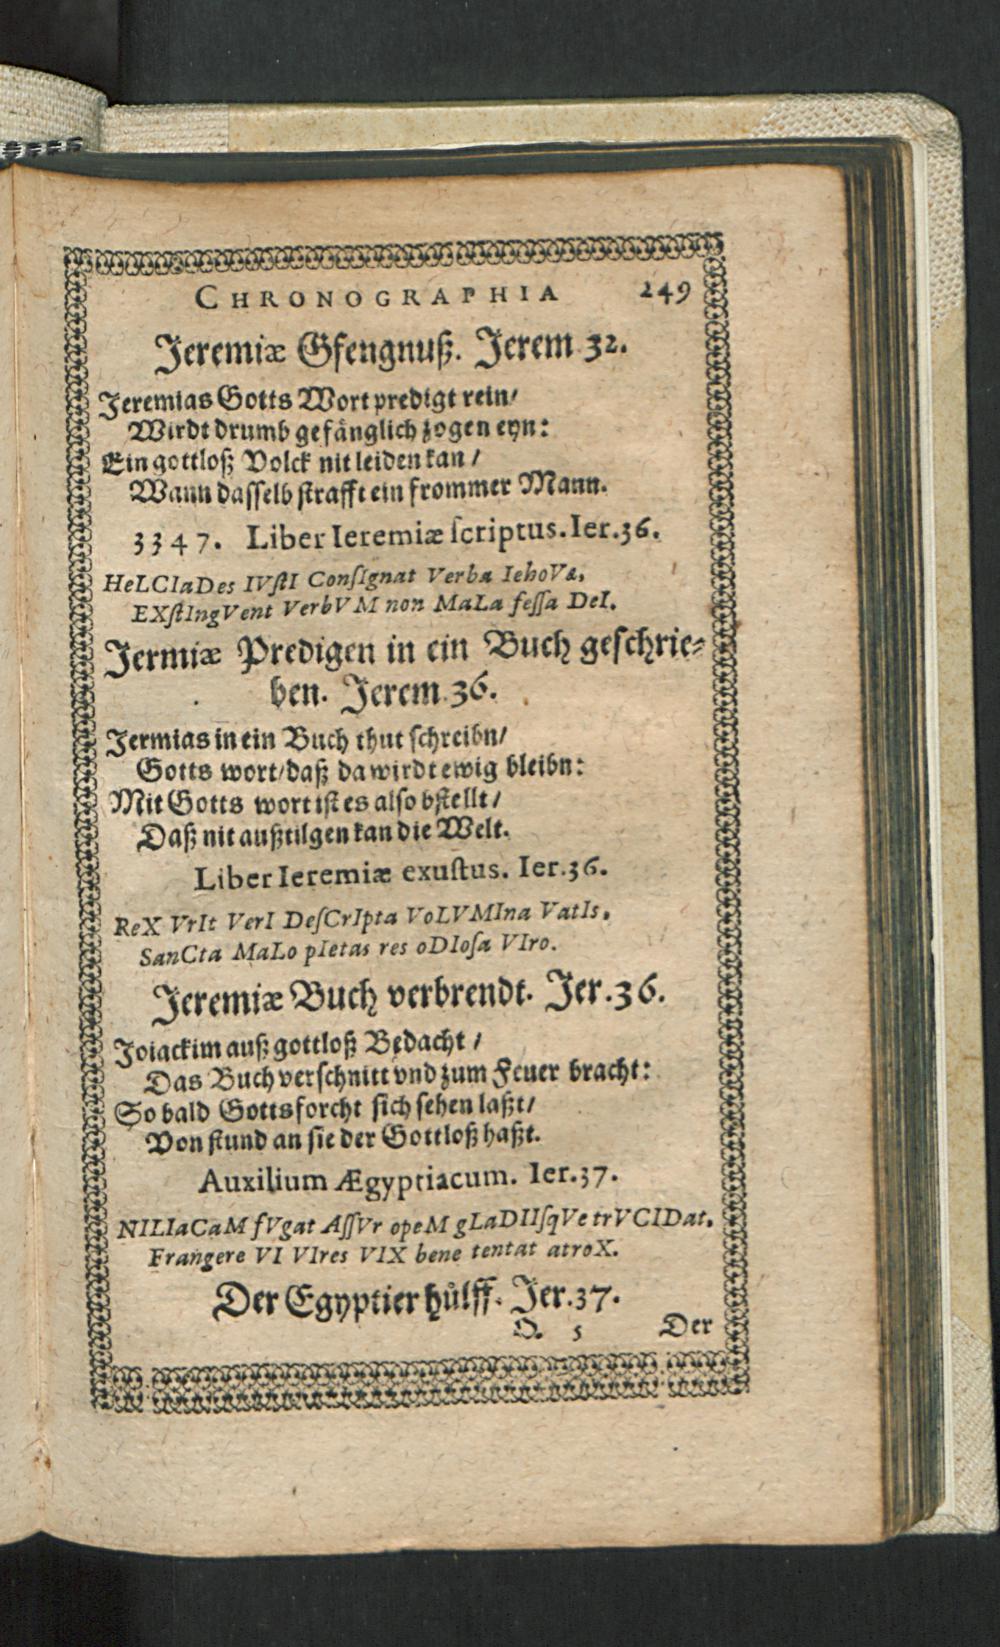 CHRONOGRAPHIA 249
Jeremiæ Gfengnuß. Jerem 32.
Jeremias Gotts Wort predigt rein/
Wirdt drumb gefänglich zogen eyn:
Ein gottloß Volck nit leiden kan /
Wann dasselb strafft ein frommer Mann.
3347. Liber Ieremiæ ſcriptus. Ier.36.
HeLCIaDes IVſtI ConſIgnat Verba IehoVæ,
EXſtIngVent VerbVM non MaLa feſſa DeI.
Jermiæ Predigen in ein Buch geſchrie⸗
ben. Jerem.36.
Jermias in ein Buch thut ſchreibn/
Gotts wort/daß da wirdt ewig bleibn:
Mit Gotts wort iſt es alſo bſtellt/
Daß nit außtilgen kan die Welt.
Liber Ieremiæ exuſtus. Ier.36.
ReX VrIt VerI DeſCrIpta VoLVMIna VatIs,
SanCta MaLo pIetas res oDIoſa VIro.
Jeremiæ Buch verbrendt. Jer.36.
Joiackim auß gottloß Bedacht /
Das Buch verſchnitt vnd zum Feuer bracht:
So bald Gottsforcht ſich ſehen laßt/
Von ſtund an ſie der Gottloß haßt.
Auxilium Ægyptiacum. Ier.37.
NILIaCaM fVgat AſſVr opeM gLaDIIſqVe trVCIDat,
Frangere VI VIres VIX bene tentat atroX.
Der Egyptier huͤlff. Jer.37.
Q. 5 Der